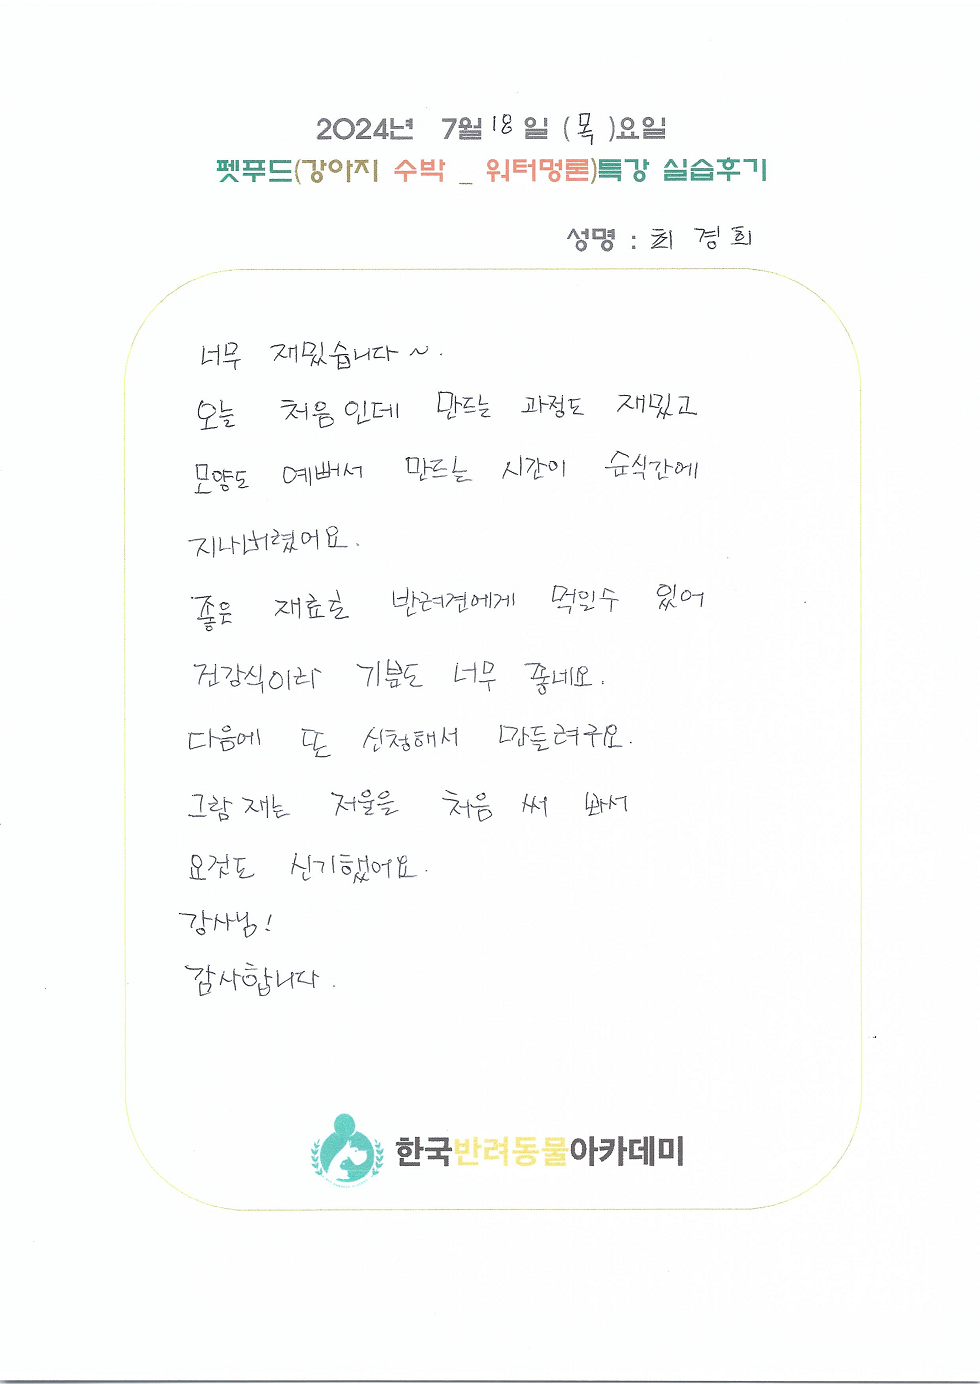 2024년 7월 18일 (목)요일
펫푸드(강아지 수박 _ 워터멍론)특강 실습후기
성명 : 최경희
너무 재밌습니다~.
오늘 처음인데 만드는 과정도 재밌고
모양도 예뻐서 만드는 시간이 순식간에
지나버렸어요.
좋은 재료로 반려견에게 먹일수 있어
건강식이라 기분도 너무 좋네요.
다음에 또 신청해서 만들려구요.
그람 재는 저울을 처음 써 봐서
요것도 신기했어요.
강사님!
감사합니다.
한국반려동물아카데미